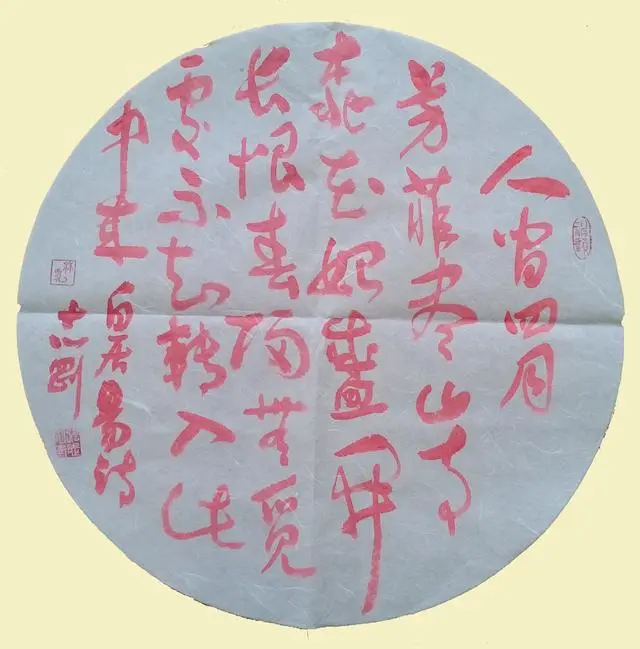 人间四月
芳菲尽山寺
桃花始盛开
长恨春归無覓
處不知轉入此
中来 白居易诗
志刚